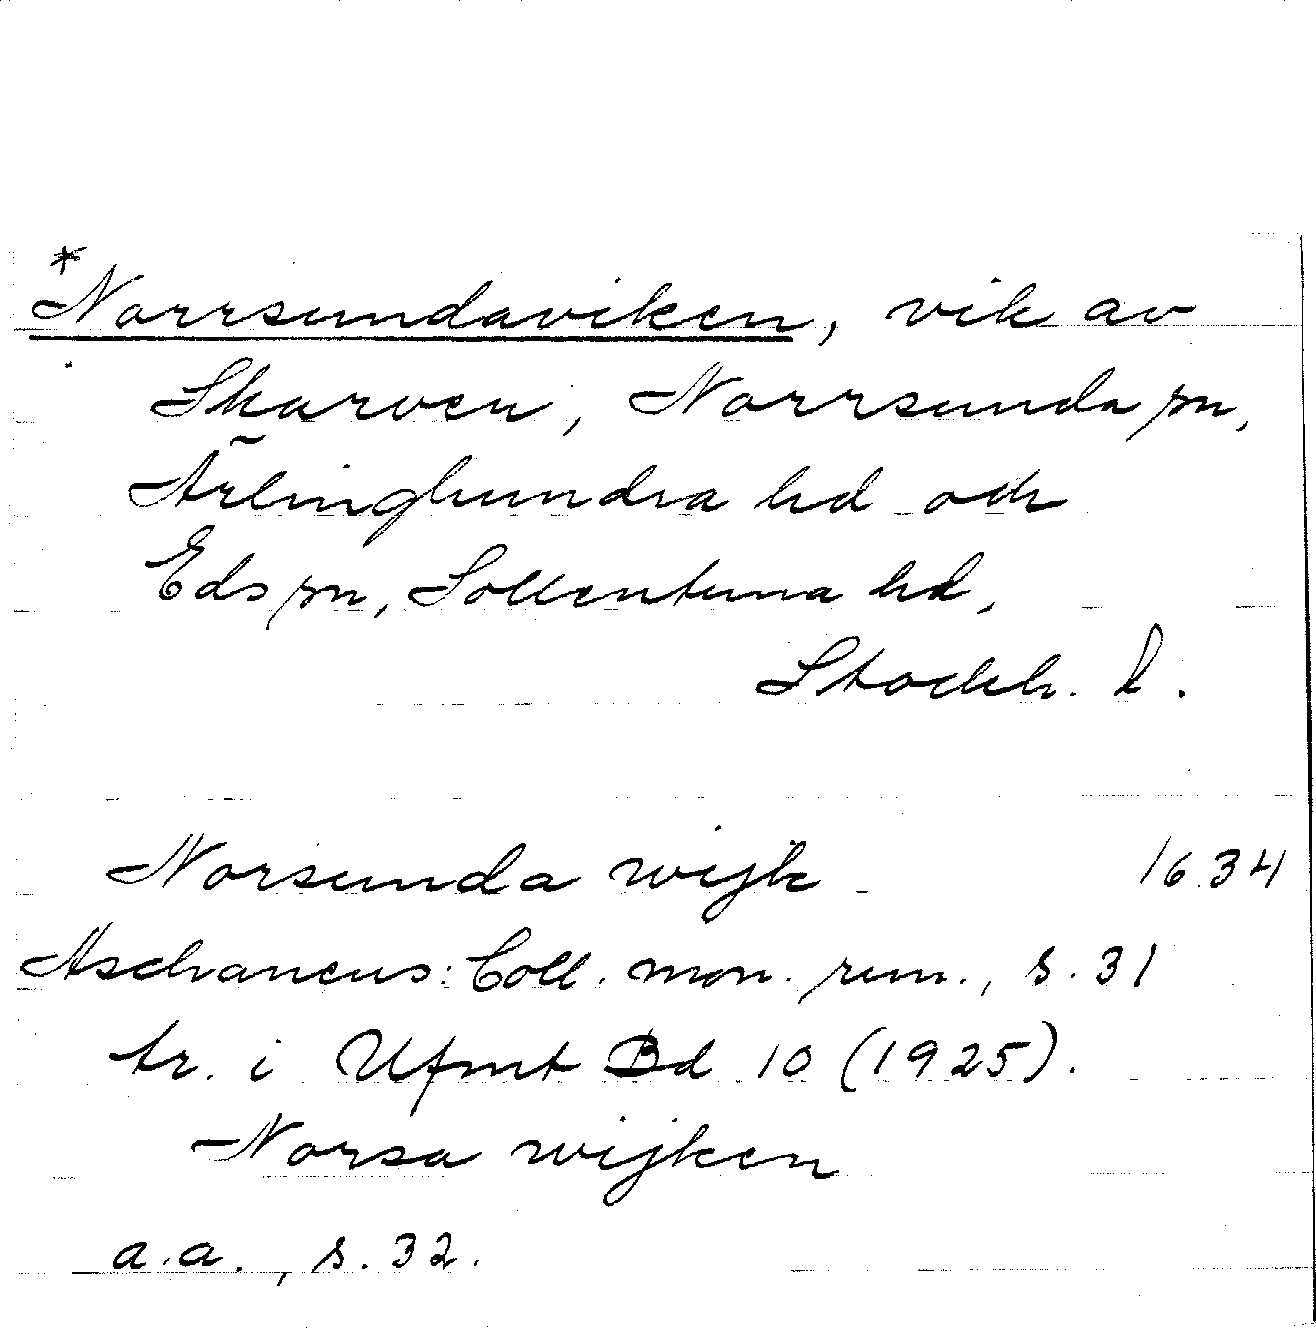 *Norrsundaviken, vik av
Skarven, Norrsunda sn,
Ärlinghundra hd och
Eds sn, Sollentuna hd,
Stockh. l.
Norsunda wijk 1634
Aschaneus: Coll. mon. run., s. 31
tr. i Ufmt Bd 10 (1925).
Norsa wijken
a.a., s. 32.